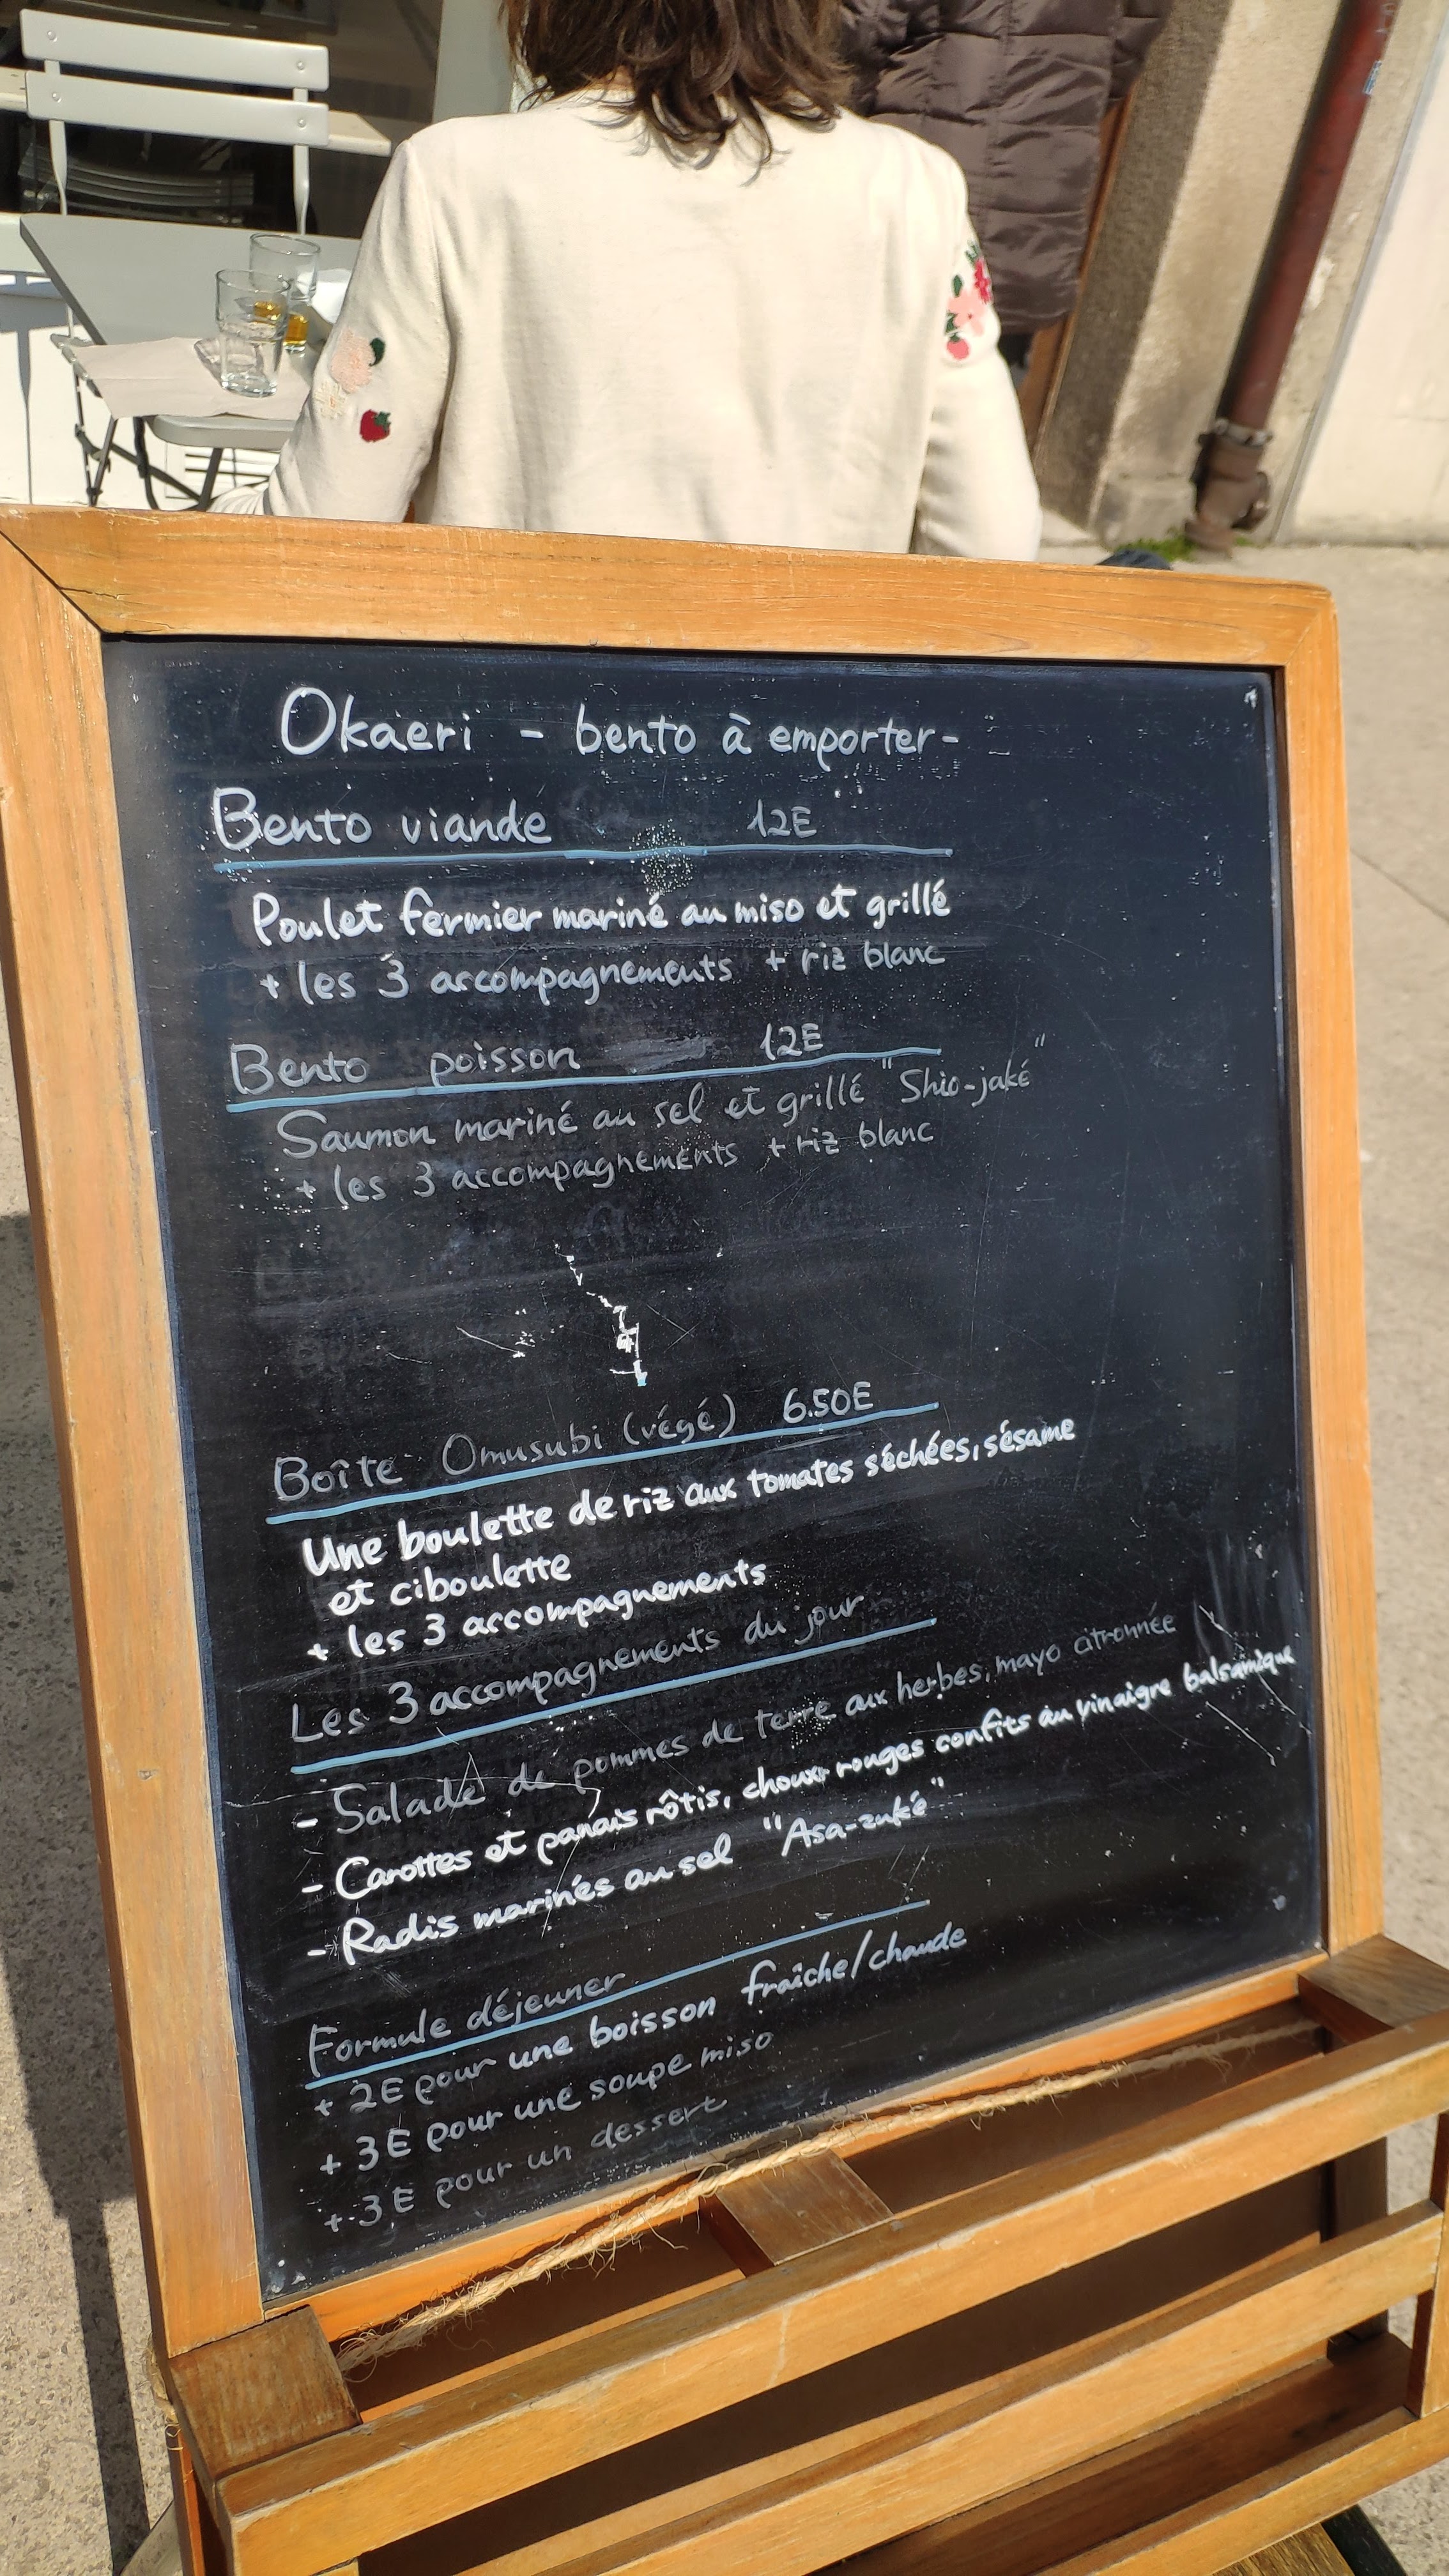 Okaeri - bento à emporter-
Bento viande 12E
Poulet fermier mariné au miso et grillé
+ les 3 accompagnements + riz blanc
Bento poisson 12E
Saumon mariné au sel et grillé "Shio-jaké"
+ les 3 accompagnements + riz blanc
Boîte Omusubi (végé) 6.50E
Une boulette de riz aux tomates séchées, sésame
et ciboulette
+ les 3 accompagnements
Les 3 accompagnements du jour
- Salade de pommes de terre aux herbes, mayo citronnée
- Carottes et panais rôtis, choux rouges confits au vinaigre balsamique
- Radis marinés au sel "Asa-zuké"
Formule déjeuner
+ 2E pour une boisson fraîche/chaude
+ 3E pour une soupe miso
+ 3E pour un dessert